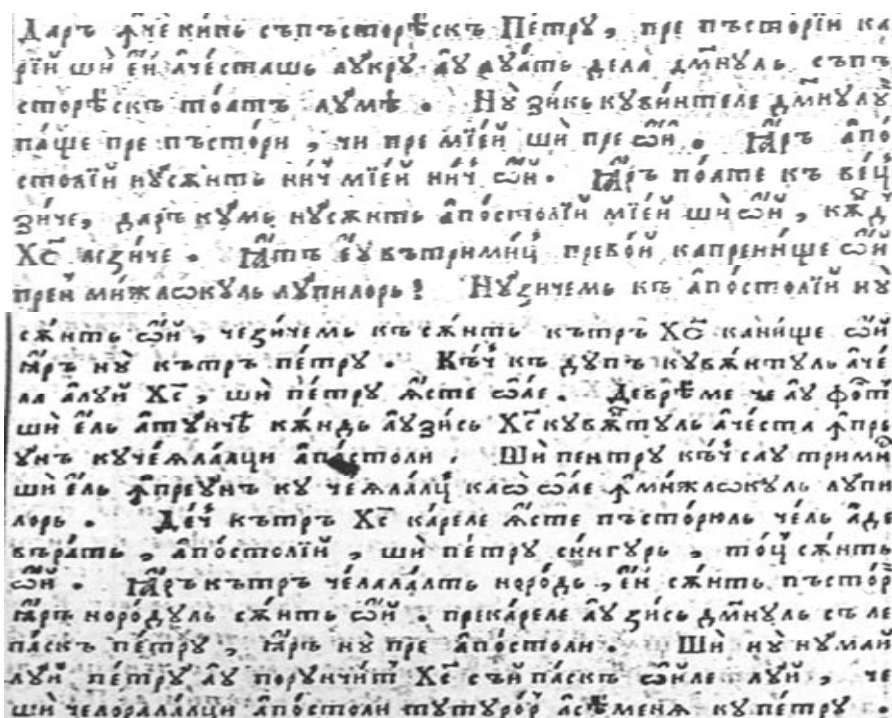 Даръ ꙟ҆чѐ ки́пь съпъсторѣ́скъ Пе́трꙋ , пре пъсторїи ка
рїй шѝ є҆́й а҆че́сташь лꙋкрꙋ̀ а҆ꙋ лꙋа́ть дела̀ дм҃нꙋль съпъ
сторѣ́скъ то́атъ лꙋ́мѣ . Нꙋ̀ зи́кь кꙋви́нтеле дм҃нꙋлꙋ́
па́ще пре пъсто́ри , чи пре мїе́й шѝ пре ѡ҆́й . Ꙗ҆́ръ а҆по́
столїй нꙋсѫ́нть ни́ч мїе́й ни́ч ѡ҆́й . Ꙗ҆́ръ по́ате къ ве́ц
зи́че , даръ кꙋмь нꙋсѫ́нть а҆по́столїй мїе́й шѝ ѡ҆́й , кѫ́д
Хс҃ ле зи́че . Ꙗ҆́тъ є҆́ꙋ въ трими́ц превой ка пре ни́ще ѡ҆́й
прей ми́жлѡкꙋль лꙋпилорь ! Нꙋзи́чемь къ а҆по́столїй нꙋ̀
сѫ́нть ѡ҆́й , че зи́чемь къ сѫ́нть кътръ Хс҃ ка ни́ще ѡ҆́й
ꙗ҆́ръ нꙋ̀ кътръ пе́трꙋ . Къ́ч къ дꙋпъ кꙋвѫ́нтꙋль а҆че́
ла а҆лꙋй Хс҃ , шѝ пе́трꙋ ꙗ҆́сте ѡ҆́ае . Девре́ме че а҆ꙋ фо́т
шѝ є҆́ль а҆тꙋ́нчѣ кѫ́ндь а҆ꙋзи́сь Хс҃ кꙋвѫ́нтꙋль а҆че́ста ꙟ҆пре
ꙋнъ кꙋчеѧла́лци а҆по́столи . Шѝ пентрꙋ къ́ч саꙋ трими́
шѝ є҆́ль ꙟ҆преꙋнъ кꙋ чеѧла́лц каѡ ѡ҆́ае ꙟ҆ми́жлѡкꙋль лꙋпи
лорь . Де́ч кътръ Хс҃ ка́реле ꙗ҆́сте пъсто́рюль че́ль а҆де
въра́ть , а҆по́столїй , шѝ пе́трꙋ си́нгꙋрь , то́ц сѫ́нть
ѡ҆́й . Ꙗ҆́ръ кътръ че́лалалть норо́дь , є҆́й сѫ́нть пъсто́р
ꙗ҆́ръ норо́дꙋль сѫ́нть ѡ҆́й . прека́реле а҆ꙋ зи́сь дм҃нꙋль съ ле
па́скъ пе́трꙋ , ꙗ҆́ръ нꙋ̀ пре а҆по́столи . Шѝ нꙋ̀ нꙋма́й
лꙋй пе́трꙋ а҆ꙋ порꙋнчи́т Хс҃ съй па́скъ ѡ҆́йле лꙋй , че
шѝ челорала́лци а҆по́столи тꙋтꙋро́р а҆сѣ́менѧ кꙋ пе́трꙋ .